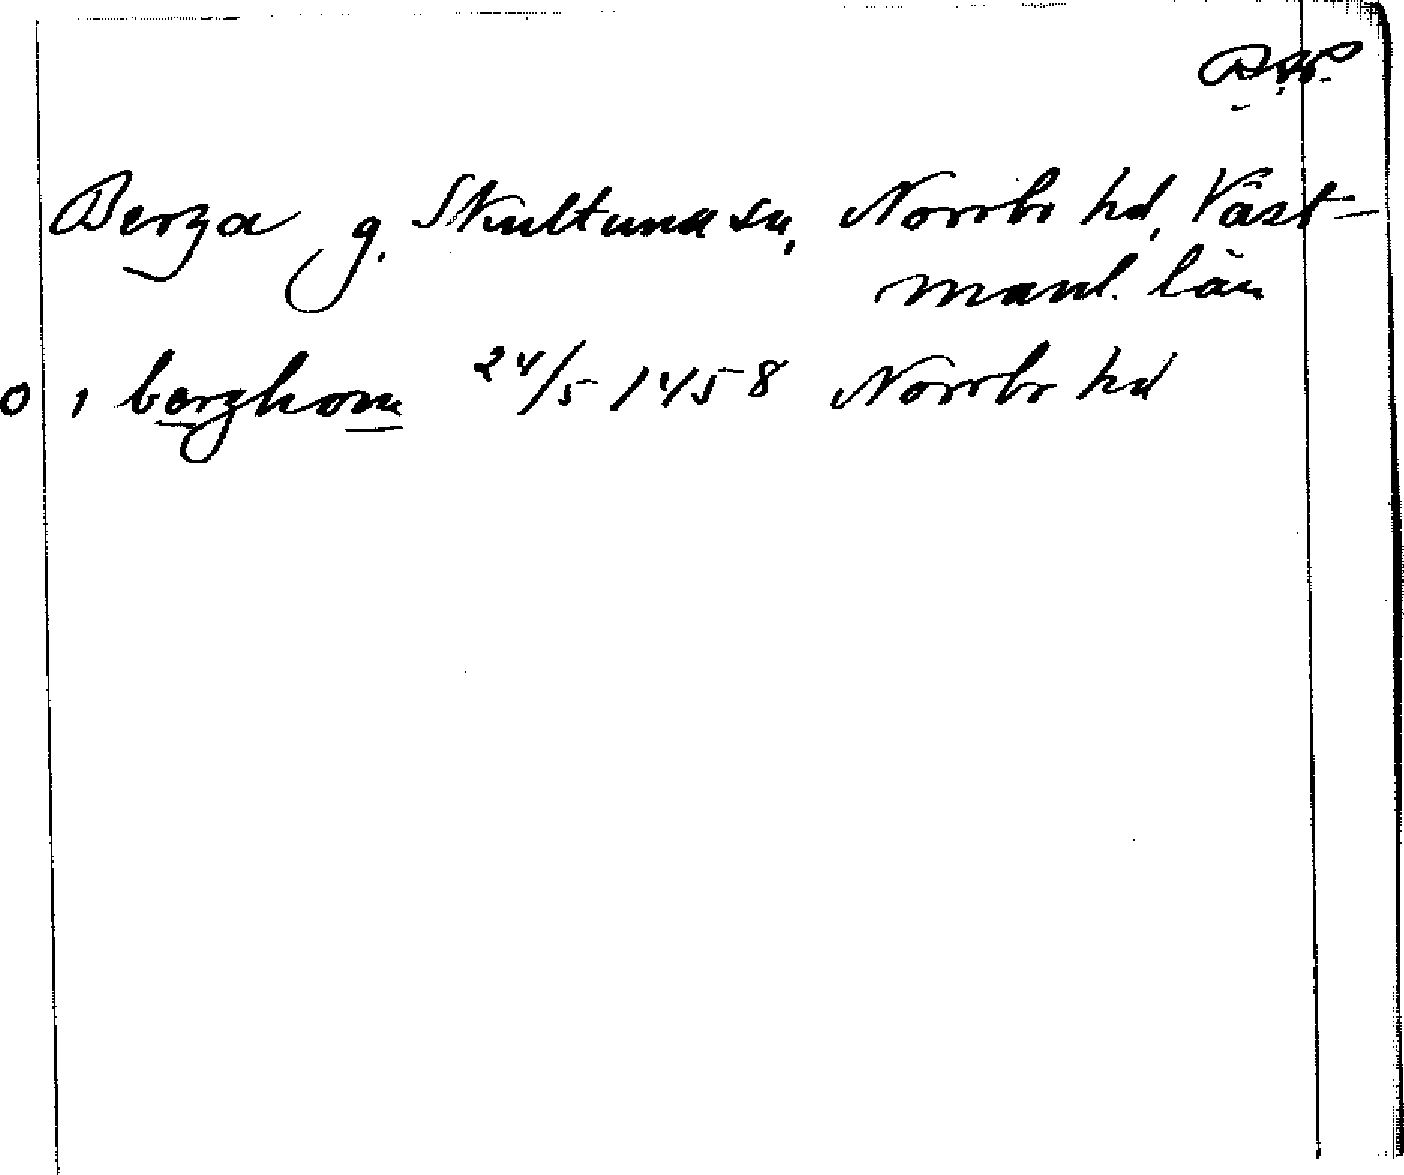 Berga g. Skultuna sn, Norrbo hd, Väst-
manl. län
o i berghom 24/5 1458 Norrbo hd